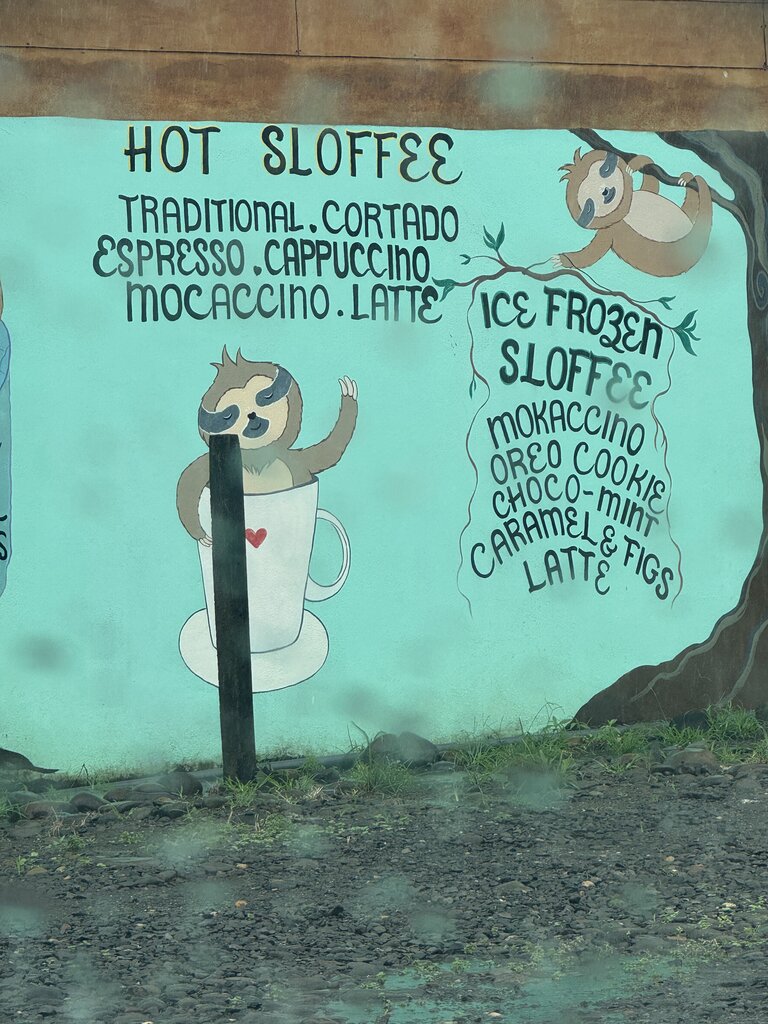 HOT SLOFFEE
TRADITIONAL. CORTADO
ESPRESSO. CAPPUCCINO
MOCACCINO. LATTE
ICE FROZEN
SLOFFEE
MOKACCINO
OREO COOKIE
CHOCO-MINT
CARAMEL & FIGS
LATTE